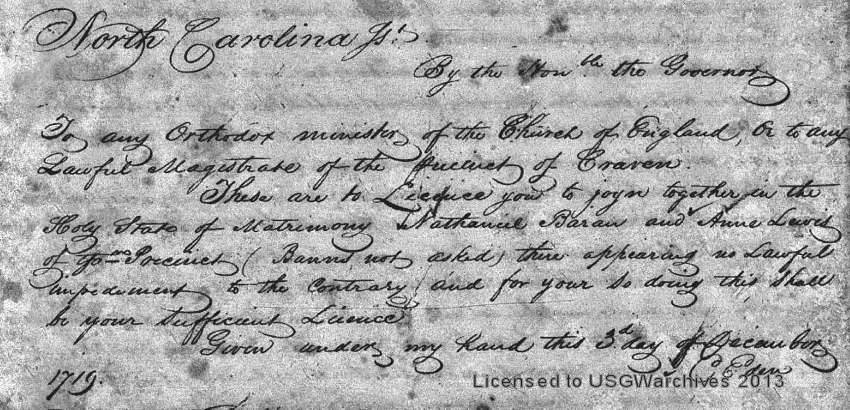 North Carolina Js.t
By the Hon.ble the Governor
To any Orthodox minister of the Church of England, Or to any
Lawful Magistrate of the precinct of Craven.
These are to Licence you to joyn together in the
Holy State of Matrimony Nathaniel Baran and Anne Lewis
of Precinct (Banns not asked) there appearing no Lawful
impediment to the Contrary and for your so doing this shall
be your Sufficient Licence
Given under my hand this 3.d day of Decembor
1719. C Eden
Licensed to USGWarchives 2013